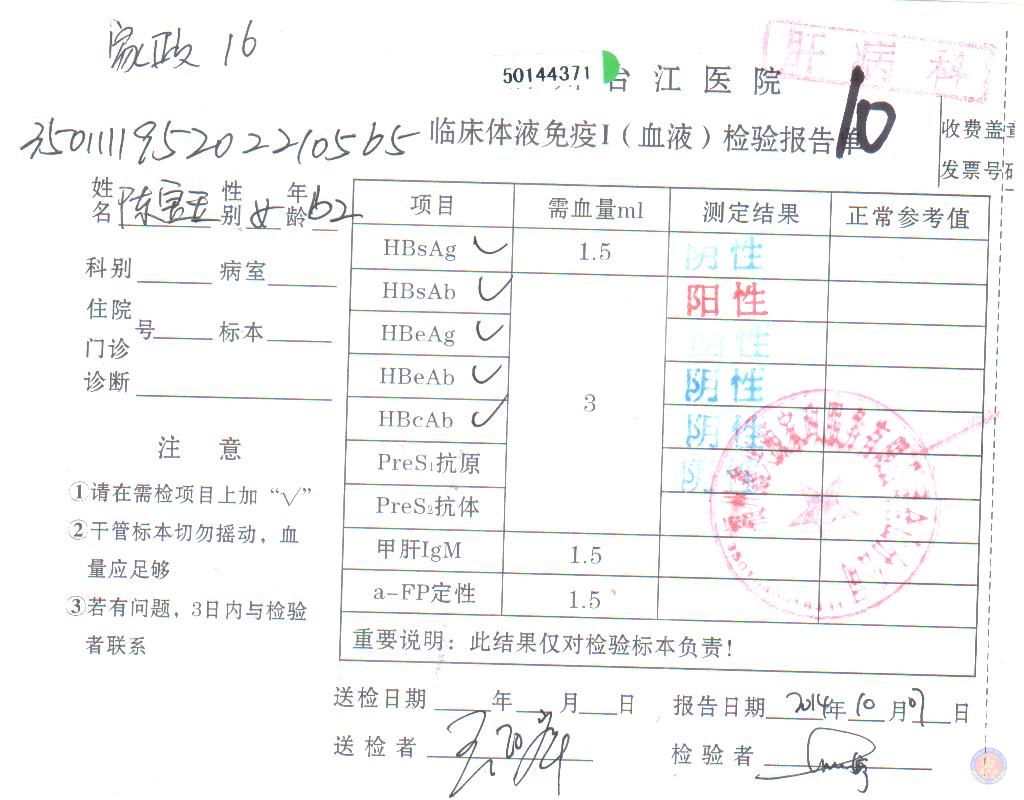 家政 16
肝病科
50144371 台江医院
10
350111195202210565 临床体液免疫I（血液）检验报告单
收费盖章
发票号码
姓名 陈 性别 女 年龄 62
科别 病室
住院
门诊 号 标本
诊断
注 意
①请在需检项目上加“√”
②干管标本切勿摇动，血
量应足够
③若有问题，3日内与检验
者联系
项目 需血量ml 测定结果 正常参考值
HBsAg ✓ 1.5 阴性
HBsAb ✓ 阳性
HBeAg ✓ 阴性
HBeAb ✓ 3 阴性
HBcAb ✓ 阴性
PreS₁抗原 阴性
PreS₂抗体
甲肝IgM 1.5
a-FP定性 1.5
重要说明：此结果仅对检验标本负责！
送检日期 年 月 日 报告日期 2014年10月07日
送检者 检验者